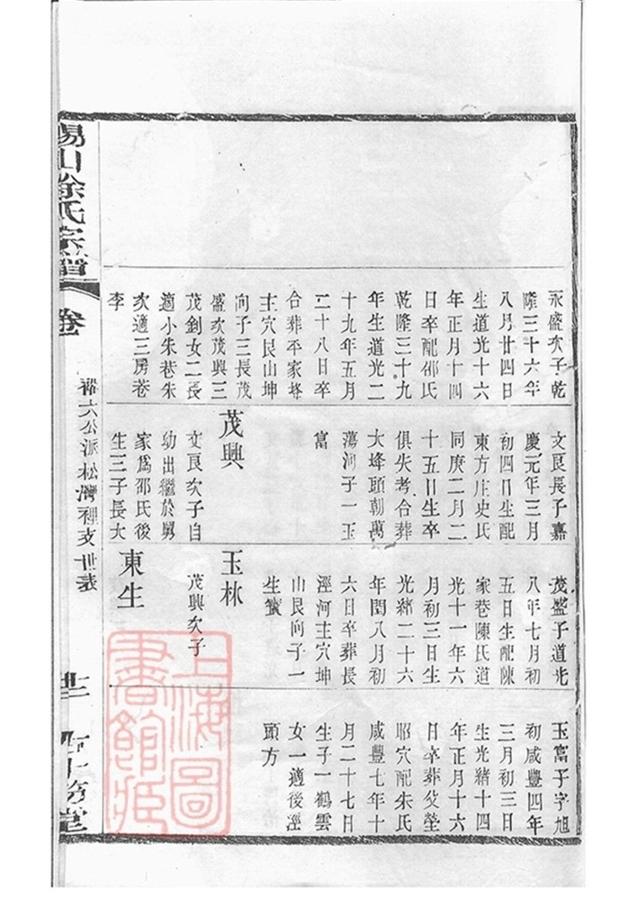 永盛次子乾
隆三十六年
八月廿四日
生道光十六
年正月十四
日卒配邵氏
乾隆三十九
年生道光二
十九年五月
二十八日卒
合葬平家塝
主穴艮山坤
向子三長茂
盛次茂興三
茂釗女二長
適小朱巷朱
次適三房巷
李
文艮長子嘉
慶元年三月
初四日生配
東方庄史氏
同庚二月二
十五日生卒
俱失考合葬
大塳頭朝萬
蕩河子一玉
富
茂興
文艮次子自
幼出繼於舅
家爲邵氏後
生三子長大
茂盛子道光
八年七月初
五日生配陳
家巷陳氏道
光十一年六
月初三日生
光緒二十六
年閏八月初
六日卒葬長
涇河主穴坤
山艮向子一
生蠻
玉林
茂興次子
東生
玉富子字旭
初咸豐四年
三月初三日
生光緒十四
年正月十六
日卒葬父塋
昭穴配朱氏
咸豐七年十
月二十七日
生子一鶴雲
女一適後涇
頭方
錫山徐氏宗譜
卷
裕六公派松灣裡支世表
上海圖書館藏